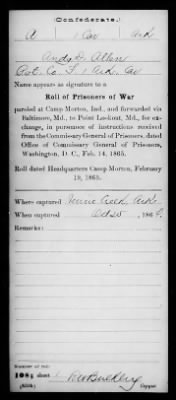 Confederate.
A 1 Cav Ark
Andy J. Allen
Pvt. Co. F, 1 Ark. Cav
Name appears as signature to a
Roll of Prisoners of War
paroled at Camp Morton, Ind., and forwarded via
Baltimore, Md., to Point Lookout, Md., for ex-
change, in pursuance of instructions received
from the Commissary General of Prisoners, dated
Office of Commissary General of Prisoners,
Washington, D. C., Feb. 14, 1865.
Roll dated Headquarters Camp Morton, February
19, 1865.
Where captured Creek, Ark.
When captured Oct 25, 1864.
Remarks:
Number of roll:
108; sheet 1
(639b) Copyist.